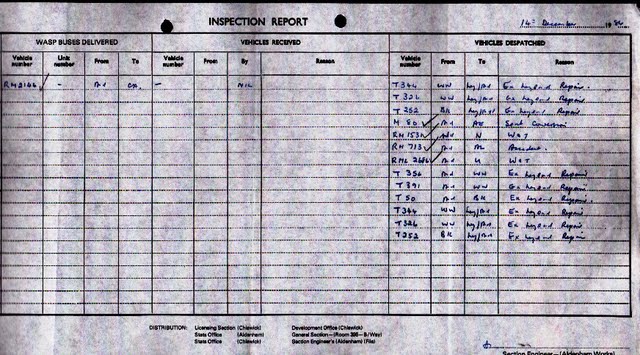 INSPECTION REPORT
14th December 19
WASP BUSES DELIVERED VEHICLES RECEIVED VEHICLES DISPATCHED
Vehicle number Unit number From To Vehicle number By Reason Vehicle number From To Reason
RM2166 - - NIL T344 WW Ley/Ad Ex Leyland Repair.
T 326 WW Ley/Ad Ex Leyland Repair
T 252 BK Ley/Ad Ex Leyland Repair
M 80 Ad AE Seat Conversion
RM 153 Ad N W&T
RM 713 Ad AL Accident.
RML 2686 Ad U W&T
T 356 Ad WW Ex Leyland Repair
T 391 Ad WW Ex Leyland Repair
T 50 Ad BK Ex Leyland Repair.
T344 WW Ley/Ad Ex Leyland Repair
T326 WW Ley/Ad Ex Leyland Repair
T252 BK Ley/Ad Ex Leyland Repair
DISTRIBUTION: Licensing Section (Chiswick) Development Office (Chiswick)
Stats Office (Aldenham) General Section—(Room 395—B/Way)
Stats Office (Chiswick) Section Engineer's (Aldenham) (File)
Section Engineer—(Aldenham Works)